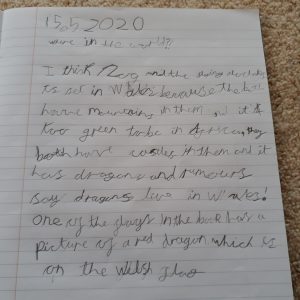 15.5.2020
were in the world!?
I think Zog and the flying doctors
is set in Wales because the hills
have mountains in them and it is
too green to be in Africa they
both have castles in them and it
has dragons and rumours
say dragons live in Wales!
one of the flags in the book has a
picture of a red dragon which is
on the Welsh flag